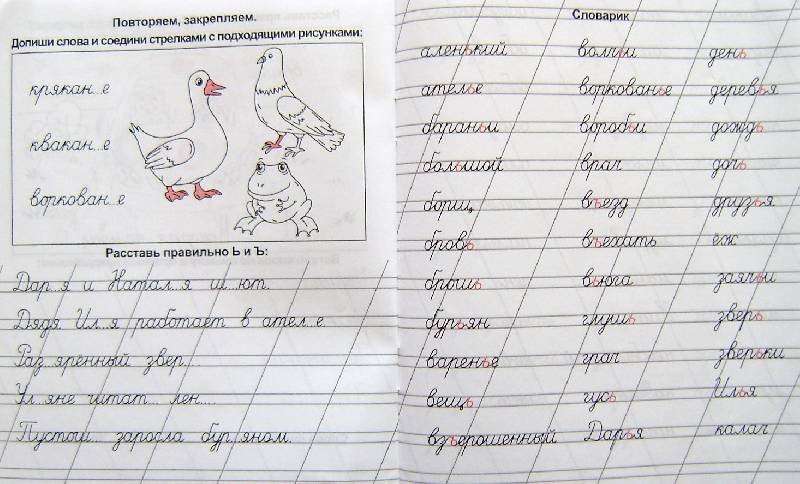 Повторяем, закрепляем.
Допиши слова и соедини стрелками с подходящими рисунками:
крякан...е
квакан...е
воркован...е
Расставь правильно Ь и Ъ:
Дар...я и Натал...я ш...ют.
Дядя Ил...я работает в ател...е.
Раз...яренный звер...
Ул...яне читат... лен...
Пустош... заросла бур...яном.
Словарик
аленький волчьи день
ателье воркованье деревья
бараньи воробьи дождь
большой врач дочь
борщ въезд друзья
бровь въехать ёж
брошь вьюга заячьи
бурьян глушь зверь
варенье грач зверьки
вещь гусь Илья
взъерошенный Дарья калач